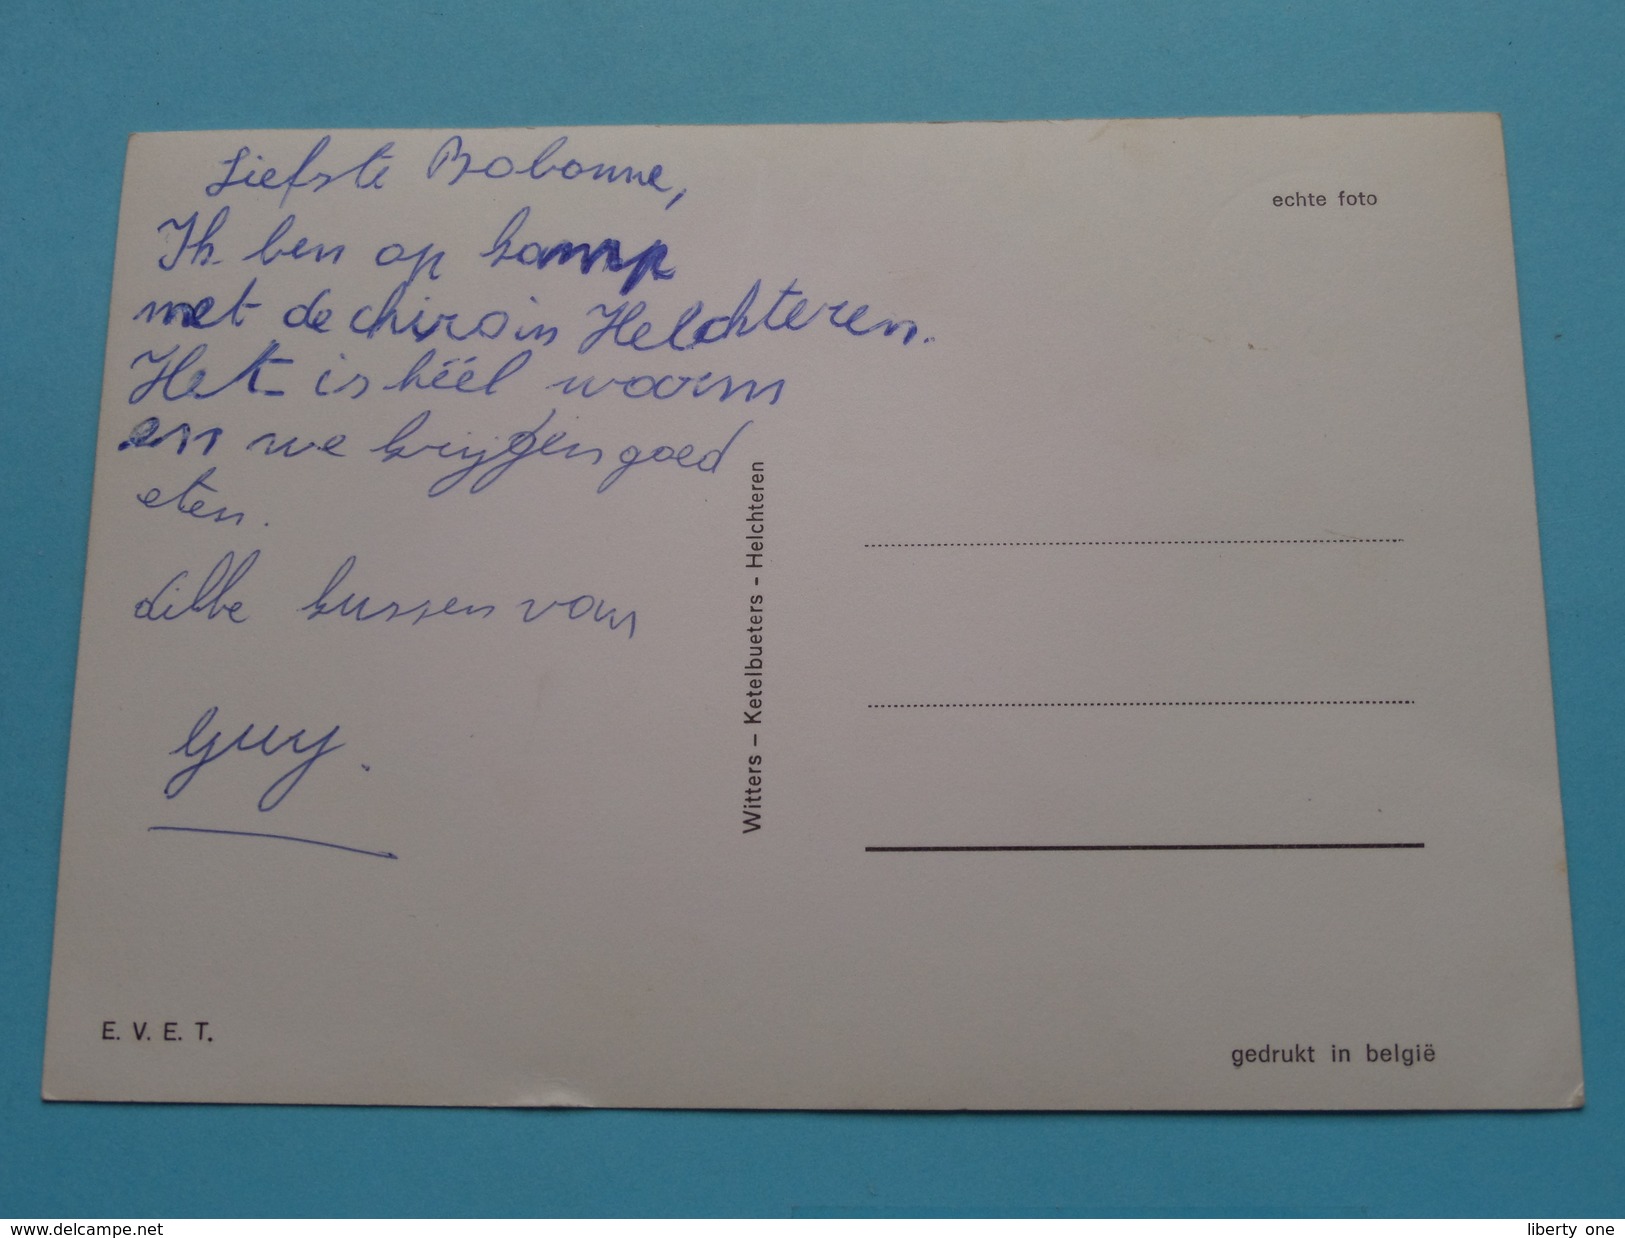 Liefste Bobonne,
Ik ben op kamp
met de chiro in Helchteren.
Het is héél warm
en we krijgen goed
eten.
dikke kussen van
Guy.
echte foto
Witters – Ketelbueters - Helchteren
E. V. E. T.
gedrukt in belgië
www.delcampe.net
liberty one